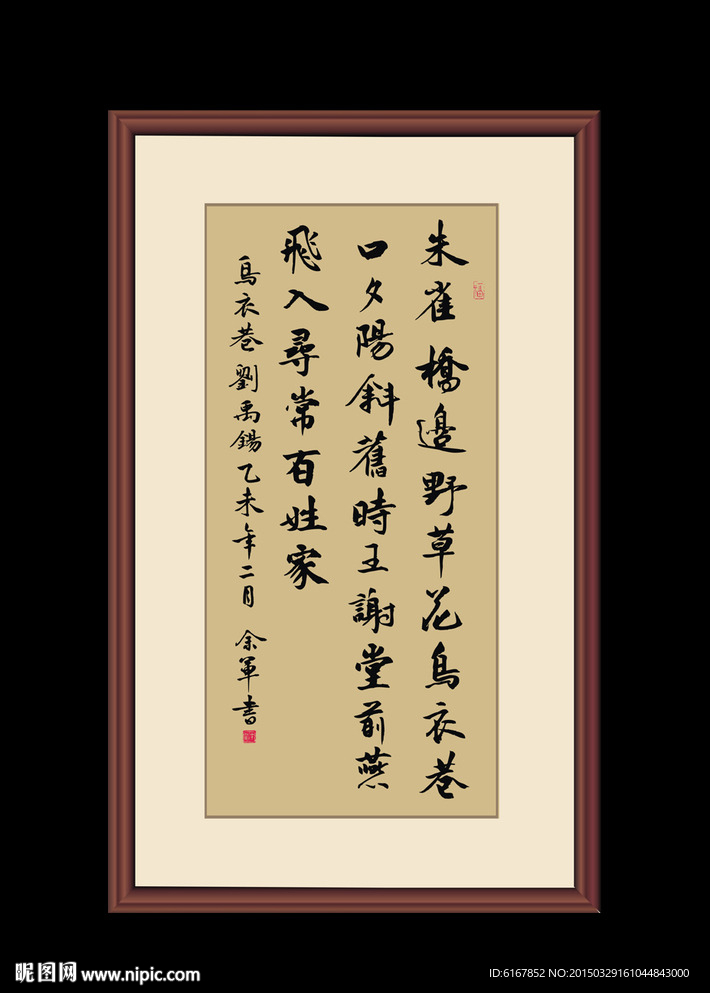 朱雀橋邊野草花烏衣巷
口夕陽斜舊時王謝堂前燕
飛入尋常百姓家
烏衣巷劉禹錫乙未年二月 余軍書
昵图网 www.nipic.com
ID:6167852 NO:20150329161044843000